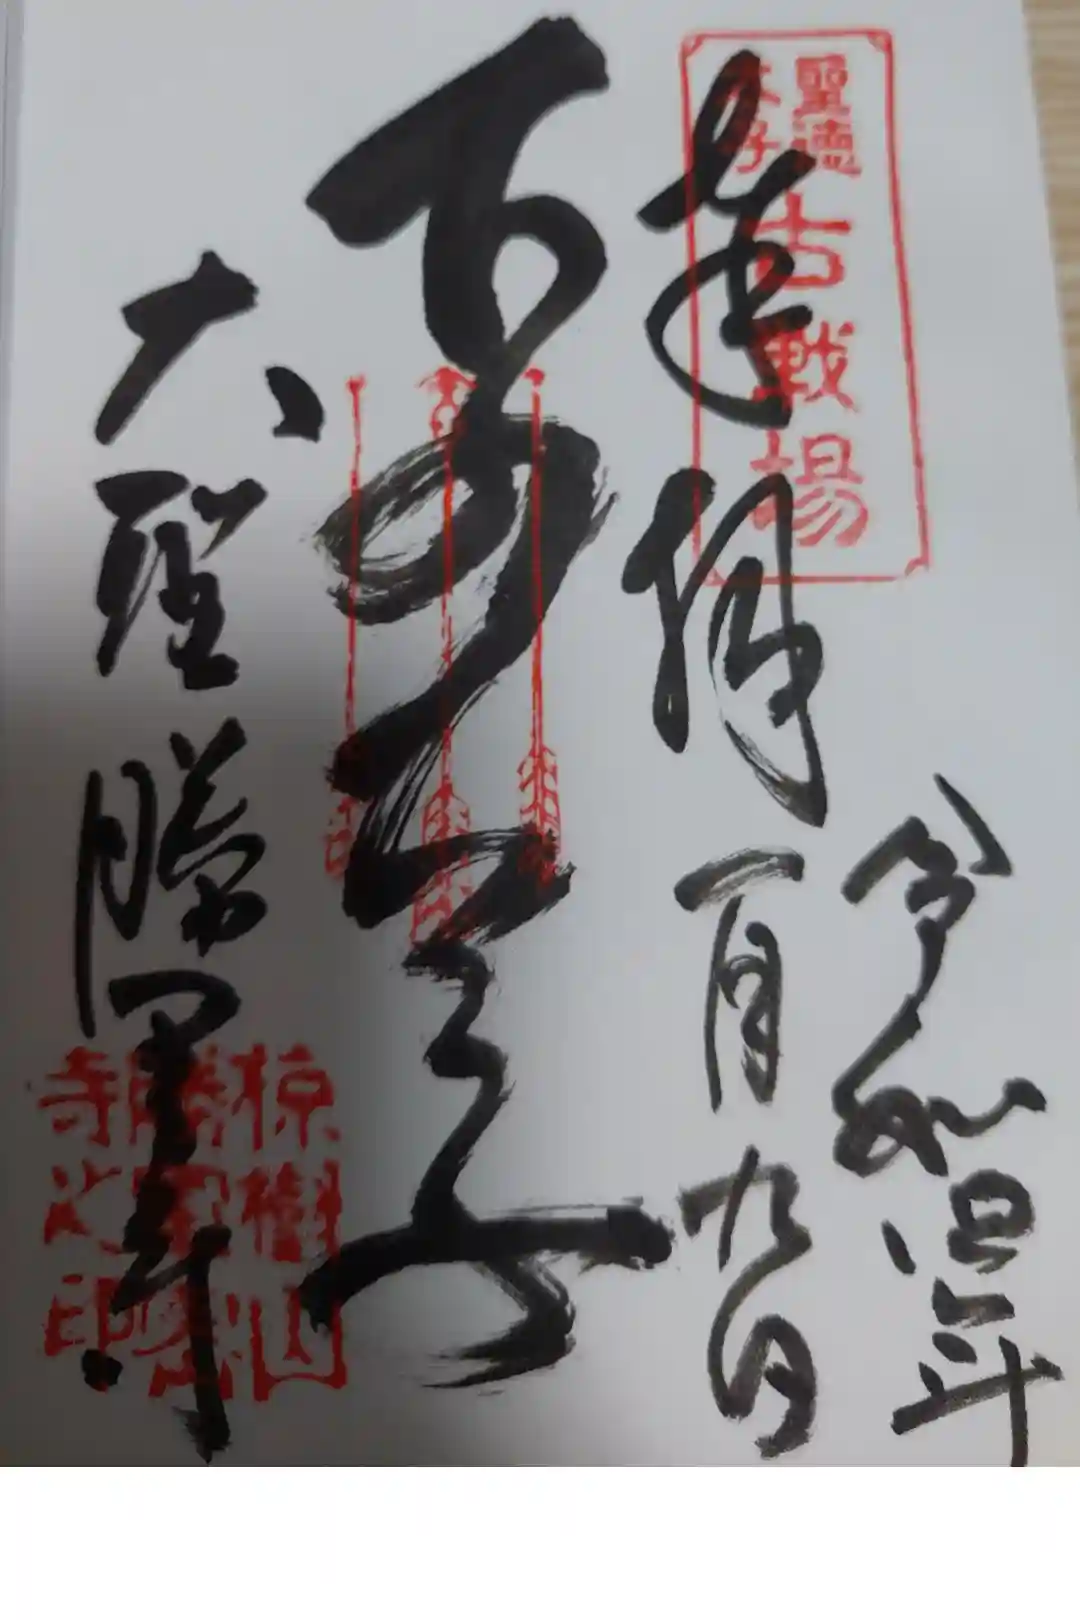 聖徳
太子
古戦場
令和四年
奉拝
一月九日
下乃太子
大聖勝軍寺
椋樹山
勝軍
寺之印